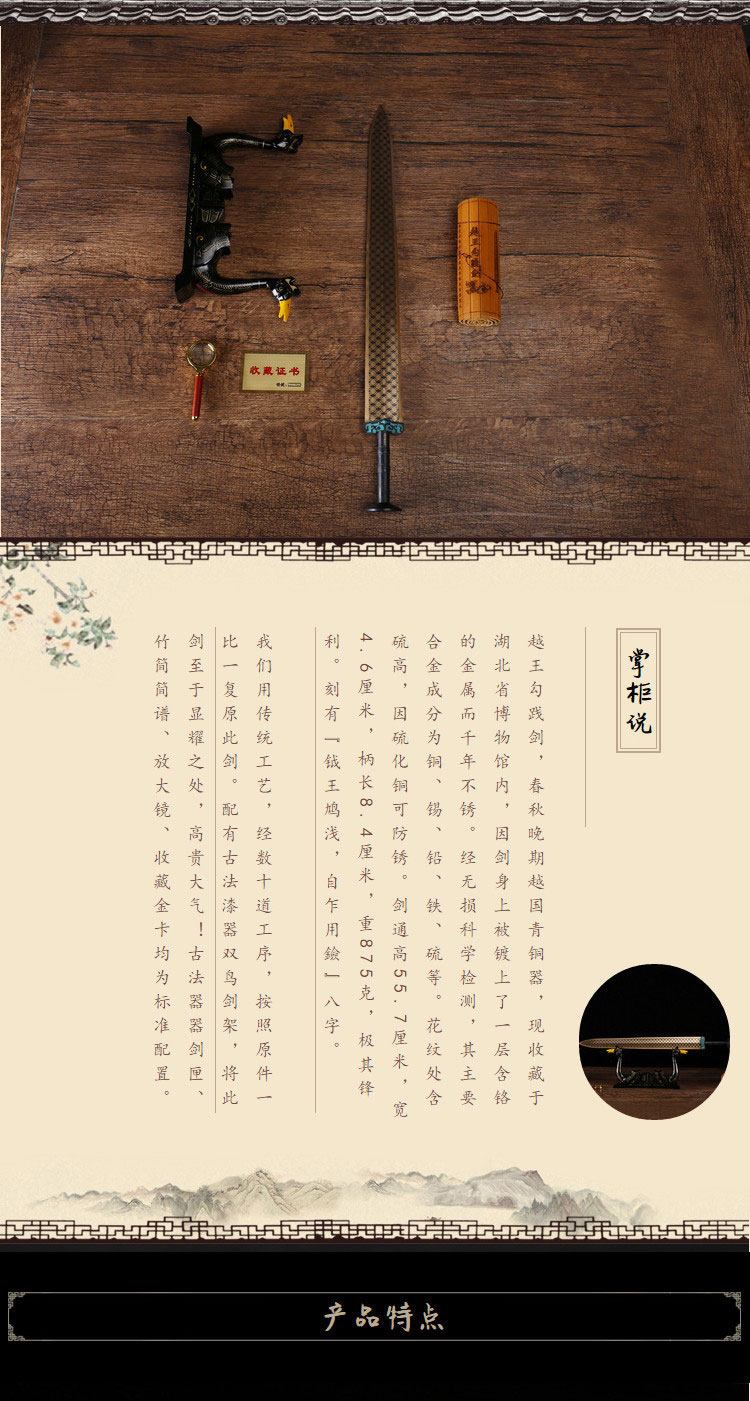 越王勾践剑
收藏证书
掌柜说
越王勾践剑，春秋晚期越国青铜器，现收藏于
湖北省博物馆内，因剑身上被镀上了一层含铬
的金属而千年不锈。经无损科学检测，其主要
合金成分为铜、锡、铅、铁、硫等。花纹处含
硫高，因硫化铜可防锈。剑通高55.7厘米，宽
4.6厘米，柄长8.4厘米，重875克，极其锋
利。刻有『钺王鸠浅，自乍用鐱』八字。
我们用传统工艺，经数十道工序，按照原件一
比一复原此剑。配有古法漆器双鸟剑架，将此
剑至于显耀之处，高贵大气！古法器器剑匣、
竹简简谱、放大镜、收藏金卡均为标准配置。
产品特点